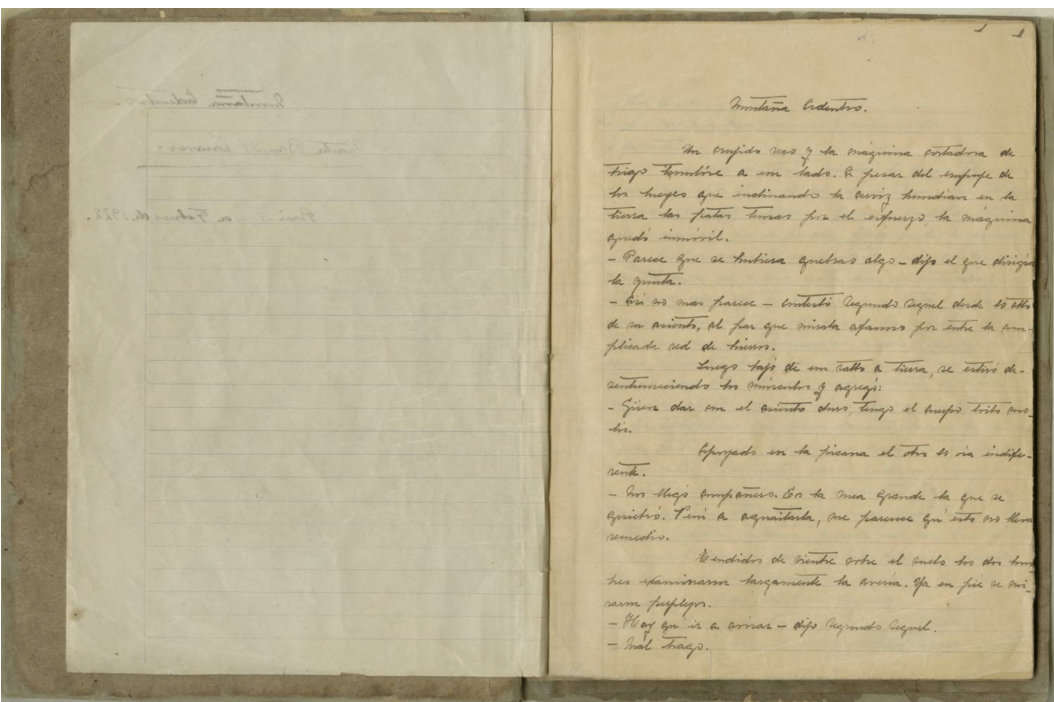 Montaña Adentro.
Un crujido seco y la máquina cortadora de
trigo tumbóse a un lado. A pesar del empuje de
los bueyes que inclinando la cerviz hundían en la
tierra las patas tensas por el esfuerzo, la máquina
quedó inmóvil.
- Parece que se hubiera quebrao algo - dijo el que dirigía
la yunta.
- Así no mas parece - contestó Segundo Seguel desde lo alto
de su asiento, al par que miraba afanoso por entre la com-
plicada red de hierros.
Luego bajó de un salto a tierra, se estiró de-
sentumeciendo los miembros y agregó:
- dar con el asiento duro, tengo el cuerpo toito mo-
lio.
Apoyado en la picana el otro lo oía indife-
rente.
- Nos llegó compañero. Es la mea grande la que se
quiebró. Vení a aguaitarla, me parece qu'esto no tiene
remedio.
Tendidos de vientre sobre el suelo los dos hom-
bres examinaron largamente la avería. Ya en pié se mi-
raron perplejos.
- Hay qu'ir a avisar - dijo Segundo Seguel.
- Mal trago.